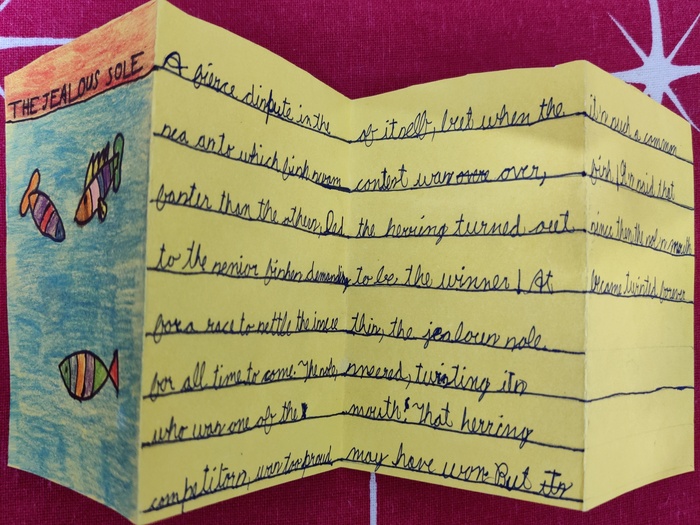 THE JEALOUS SOLE
A fierce dispute in the
sea as to which fish swam
faster than the others, led
to the senior fishes demanding
for a race to settle the issue
for all time to come. The sole,
who was one of the
competitors, was too proud
of itself, but when the
contest was over,
the herring turned out
to be the winner! At
this, the jealous sole
sneered, twisting its
mouth "That herring
may have won. But its
it is such a common
fish! It is said that
since then the sole's mouth
became twisted forever